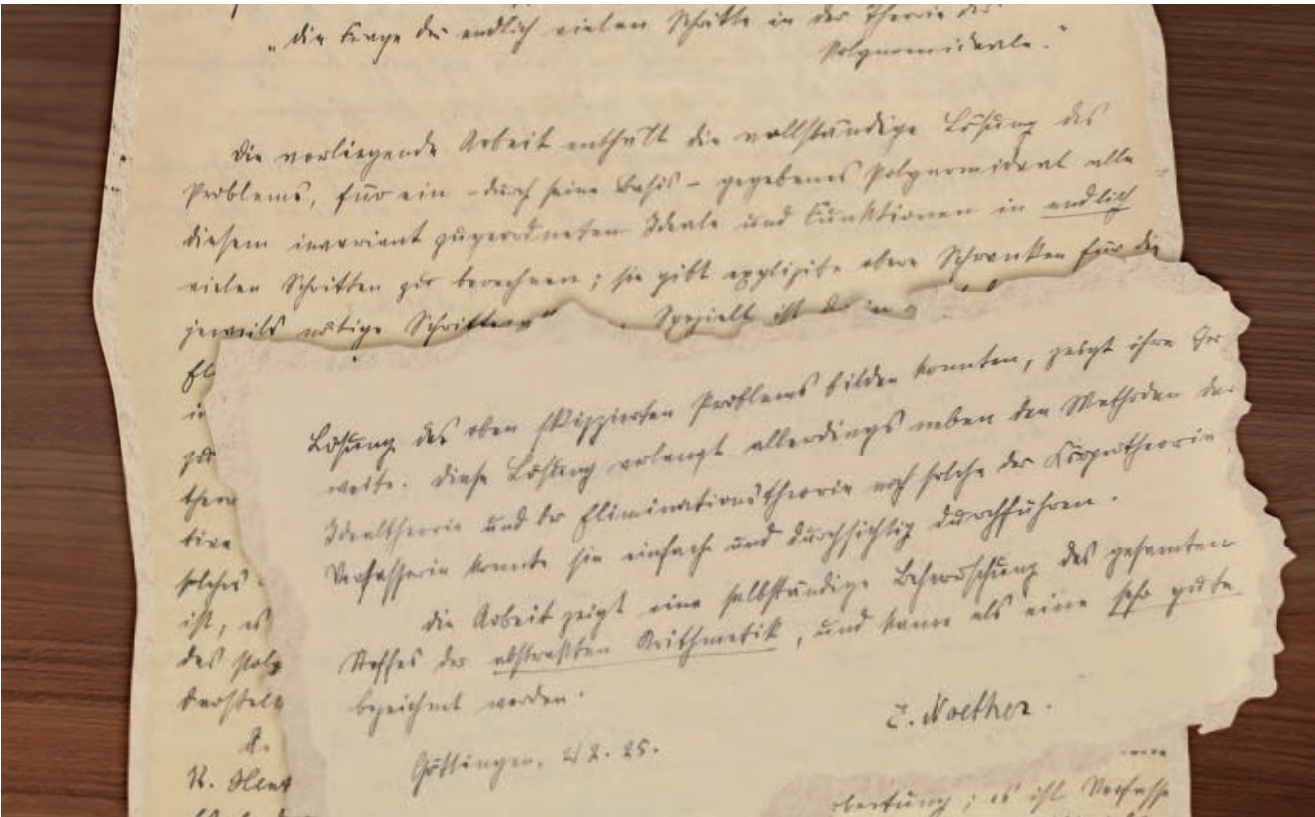 „Die Frage der endlich vielen Schritte in der Theorie der
Polynomideale."
Die vorliegende Arbeit enthält die vollständige Lösung des
Problems, für ein - durch seine Basis - gegebenes Polynomideal alle
diesem invariant zugeordneten Ideale und Funktionen in endlich
vielen Schritten zu berechnen; sie gibt explizite obere Schranken für die
jeweils nötige Schritten Speziell ist
El
in
zu
theo
tive
solches
ist, es
des Poly
darstell
R. Hent
Lösung des oben skizzierten Problems bilden konnten, zeigt ihre
weite. Diese Lösung verlangt allerdings neben den Methoden der
Idealtheorie und der Eliminationstheorie noch solche der Körpertheorie
Verfasserin konnte sie einfach und durchsichtig durchführen.
Die Arbeit zeigt eine selbständige Beherrschung des gesamten
Stoffes der abstrakten Arithmetik, und kann als eine sehr gute
bezeichnet werden.
E. Noether.
Göttingen, 2.25.
; es ist Verfasse